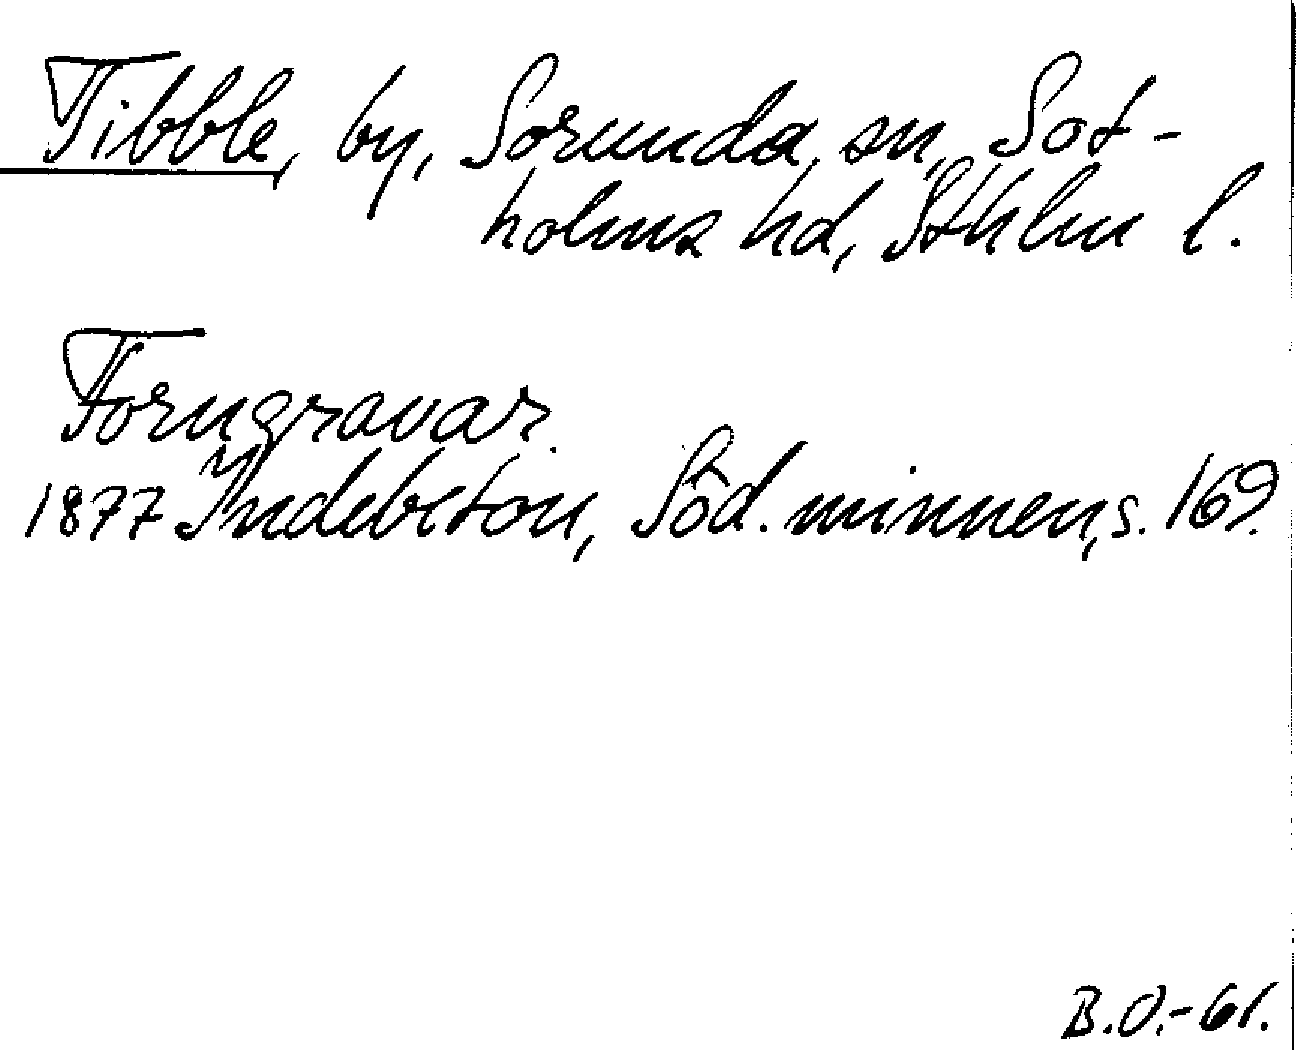 Tibble, by, Sorunda sn, Sot-
holms hd, Sthlm l.
Forngravar.
1877 Indebetou, Söd. minnen, s. 169.
B.O.-61.